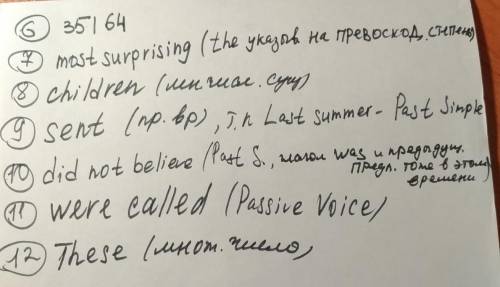 6 35/64
7 most surprising (the указыв на превосход. степень)
8 children (мн.числ. сущ)
9 sent (пр. вр), т.к Last summer - Past Simple
10 did not believe (Past S., глагол was и предыдущ. предл. тоже в этом времени)
11 were called (Passive Voice)
12 These (множ. число)